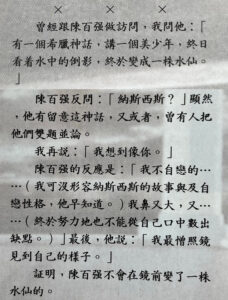 × × ×
曾經跟陳百强做訪問，我問他：「
有一個希臘神話，講一個美少年，終日
看着水中的倒影，終於變成一株水仙。
」
陳百强反問：「納斯西斯？」顯然
，他有留意這神話，又或者，曾有人把
他們雙題並論。
我再說：「我想到像你。」
陳百强的反應是：「我不自戀的…
…（我可沒形容納斯西斯的故事與及自
戀性格，他早知道。）我鼻又大，又…
…（終於努力地也不能從自己口中數出
缺點。）」最後，他説：「我最憎照鏡
見到自己的樣子。」
証明，陳百强不會在鏡前變了一株
水仙的。